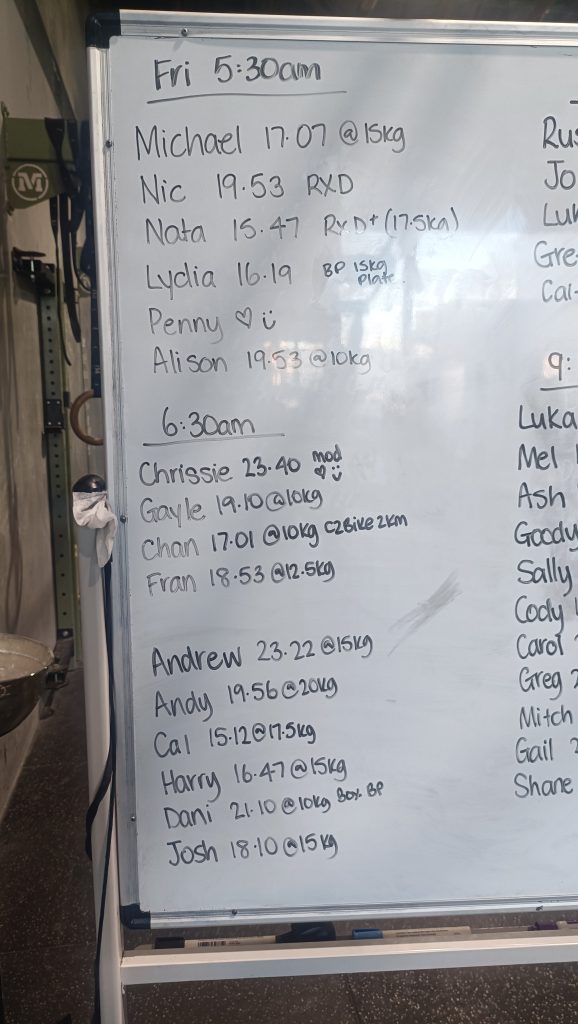 Fri 5:30am
Michael 17.07 @15kg
Nic 19.53 RXD
Nata 15.47 RxD+ (17.5kg)
Lydia 16.19 BP 15kg Plate
Penny ♡ ü
Alison 19.53 @10kg
6:30am
Chrissie 23.40 mod ♡ ü
Gayle 19.10 @10kg
Chan 17.01 @10kg C2Bike 2km
Fran 18.53 @12.5kg
Andrew 23.22 @15kg
Andy 19.56 @20kg
Cal 15.12 @17.5kg
Harry 16.47 @15kg
Dani 21.10 @10kg Box BP
Josh 18.10 @15kg
M
Rus
Jo
Luk
Gre
Cal
9:
Luka
Mel
Ash
Goody
Sally
Cody
Carol
Greg
Mitch
Gail
Shane